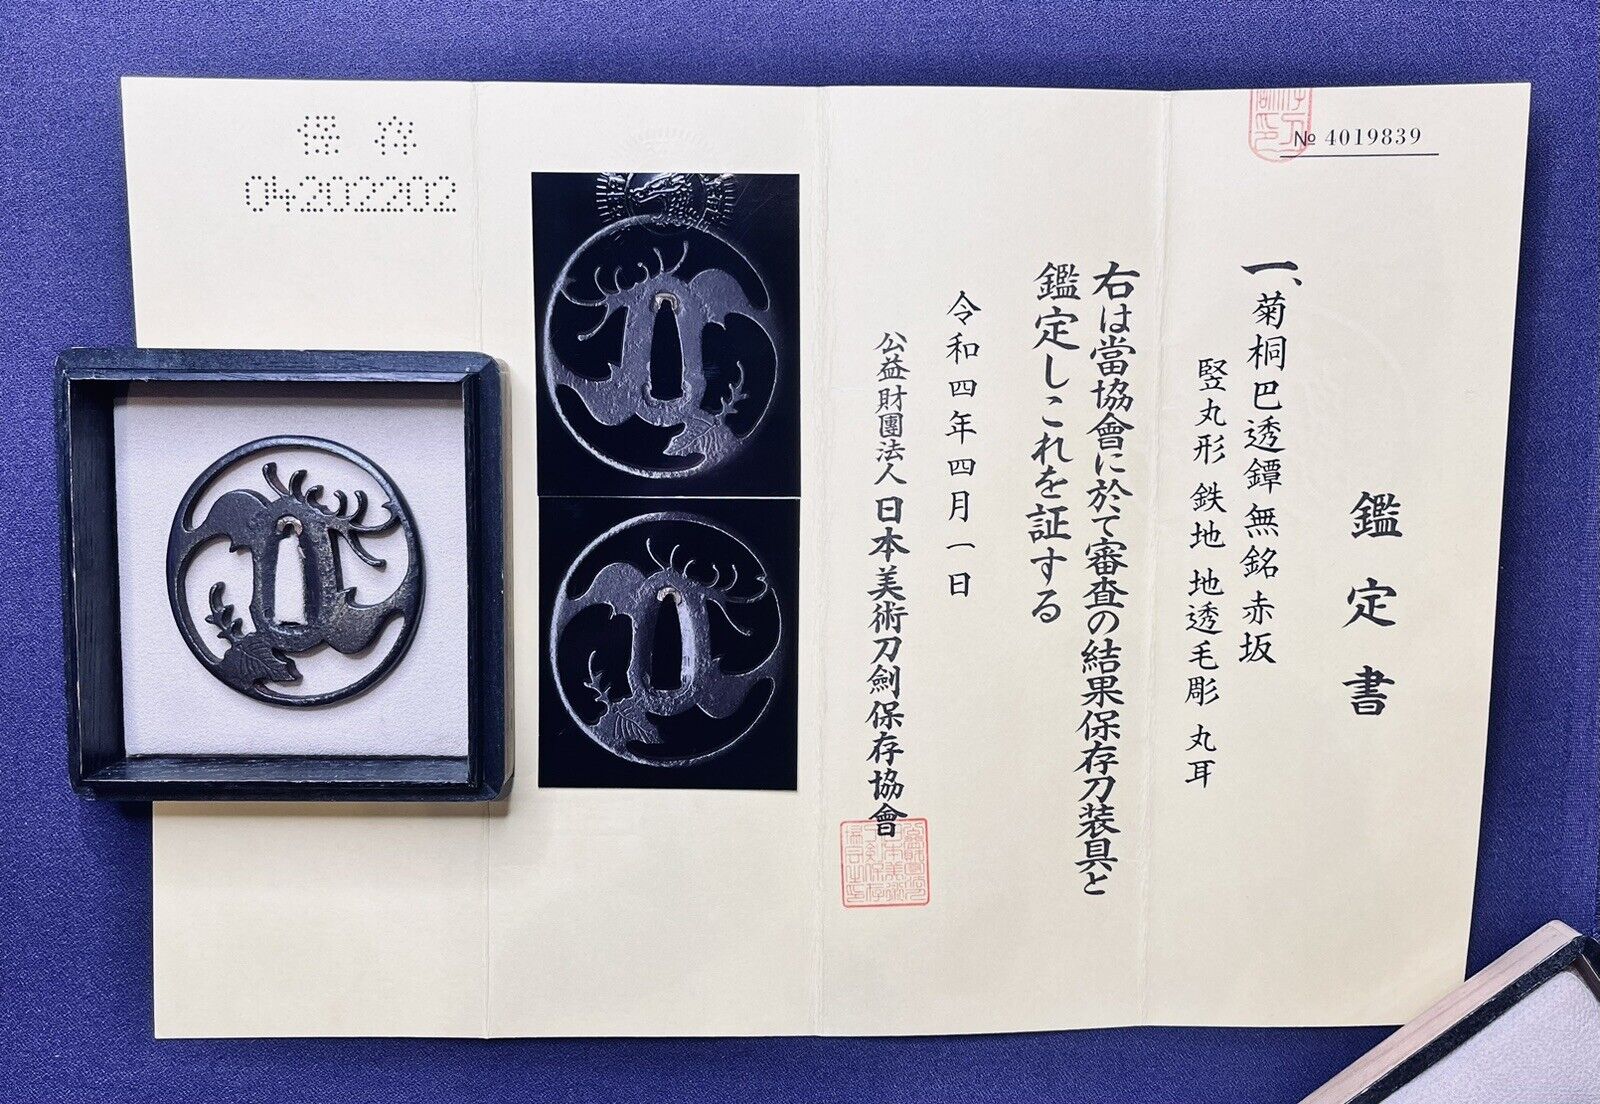 № 4019839
鑑定書
一、菊桐巴透鐔 無銘 赤坂
竪丸形 鉄地 地透毛彫 丸耳
右は當協會に於て審査の結果保存刀装具と
鑑定しこれを証する
令和四年四月一日
公益財團法人 日本美術刀劍保存協會
保存
04202202